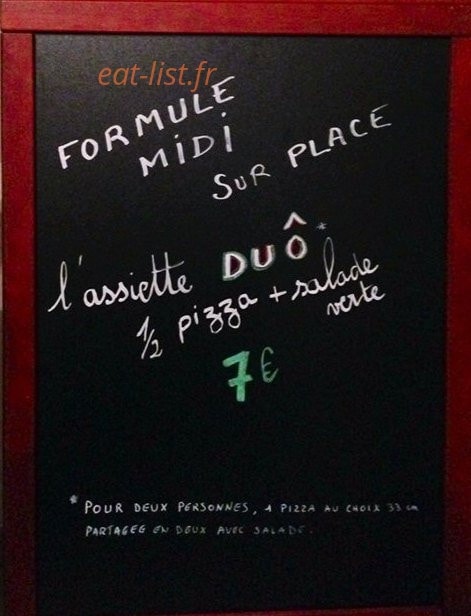 eat-list.fr
FORMULE
MIDI
SUR PLACE
l'assiette DUÔ*
1/2 pizza + salade
verte
7€
* POUR DEUX PERSONNES, 1 PIZZA AU CHOIX 33 cm
PARTAGEE EN DEUX AVEC SALADE.